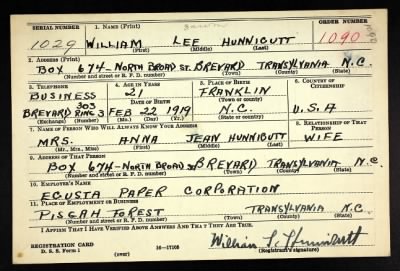 SERIAL NUMBER 1. NAME (Print) ORDER NUMBER
1029 WILLIAM LEE HUNNICUTT 1090
(First) (Middle) (Last)
2. ADDRESS (Print)
BOX 674-NORTH BROAD ST. BREVARD TRANSYLVANIA N.C.
(Number and street or R. F. D. number) (Town) (County) (State)
3. TELEPHONE 4. AGE IN YEARS 5. PLACE OF BIRTH 6. COUNTRY OF CITIZENSHIP
BUSINESS 21 FRANKLIN
DATE OF BIRTH (Town or county)
BREVARD 303 RING 3 FEB 22 1919 N.C. U.S.A
(Exchange) (Number) (Mo.) (Day) (Yr.) (State or country)
7. NAME OF PERSON WHO WILL ALWAYS KNOW YOUR ADDRESS 8. RELATIONSHIP OF THAT PERSON
MRS. ANNA JEAN HUNNICUTT WIFE
(Mr., Mrs., Miss) (First) (Middle) (Last)
9. ADDRESS OF THAT PERSON
BOX 674-NORTH BROAD ST BREVARD TRANSYLVANIA N.C.
(Number and street or R. F. D. number) (Town) (County) (State)
10. EMPLOYER'S NAME
ECUSTA PAPER CORPORATION
11. PLACE OF EMPLOYMENT OR BUSINESS
PISGAH FOREST TRANSYLVANIA N.C.
(Number and street or R. F. D. number) (Town) (County) (State)
I AFFIRM THAT I HAVE VERIFIED ABOVE ANSWERS AND THAT THEY ARE TRUE.
REGISTRATION CARD
D. S. S. Form 1 (over) 16—17105 William L. Hunnicutt
(Registrant's signature)